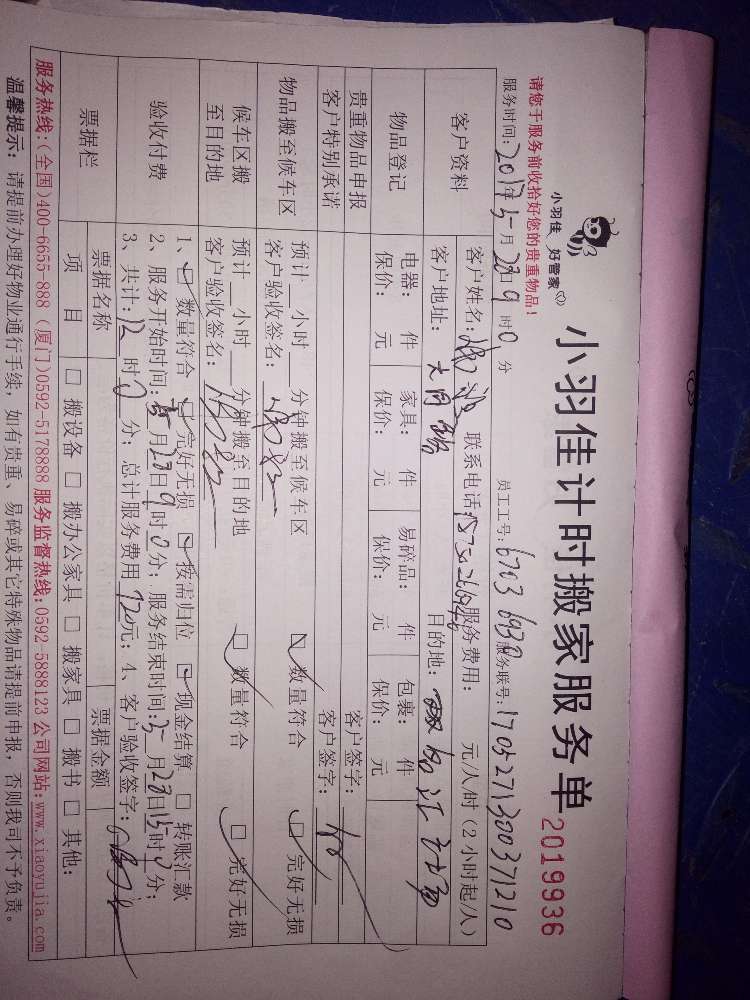 小羽佳 好管家
小羽佳计时搬家服务单
2019936
请您于服务前收拾好您的贵重物品!
服务时间:2017年5月28日9时0分 员工工号:6703 6930 服务联号:1705271300371210
客户资料
客户姓名: 联系电话: 服务费用: 元/人/时(2小时起/人)
客户地址: 目的地:
物品登记
电器: 件 家具: 件 易碎品: 件 包裹: 件
保价: 元 保价: 元 保价: 元 保价: 元
贵重物品申报 客户签字:
客户特别承诺 客户签字:
物品搬至候车区
预计__小时__分钟搬至候车区 □数量符合 □完好无损
客户验收签名:
候车区搬至目的地
预计__小时__分钟搬至目的地 □数量符合 □完好无损
客户验收签名:
验收付费
1、□数量符合 □完好无损 □按需归位 □现金结算 □转账汇款
2、服务开始时间:5月28日9时0分;服务结束时间:5月28日15时0分;
3、共计:12时0分;总计服务费用720元;4、客户验收签字:
票据栏
票据名称 票据金额
项目 □搬设备 □搬办公家具 □搬家具 □搬书 □其他:
服务热线:(全国)400-6655-888 (厦门)0592-5178888 服务监督热线:0592-5888123 公司网站:www.xiaoyujia.com
温馨提示:请提前办理好物业通行手续,如有贵重、易碎或其它特殊物品请提前申报,否则我司不予负责。